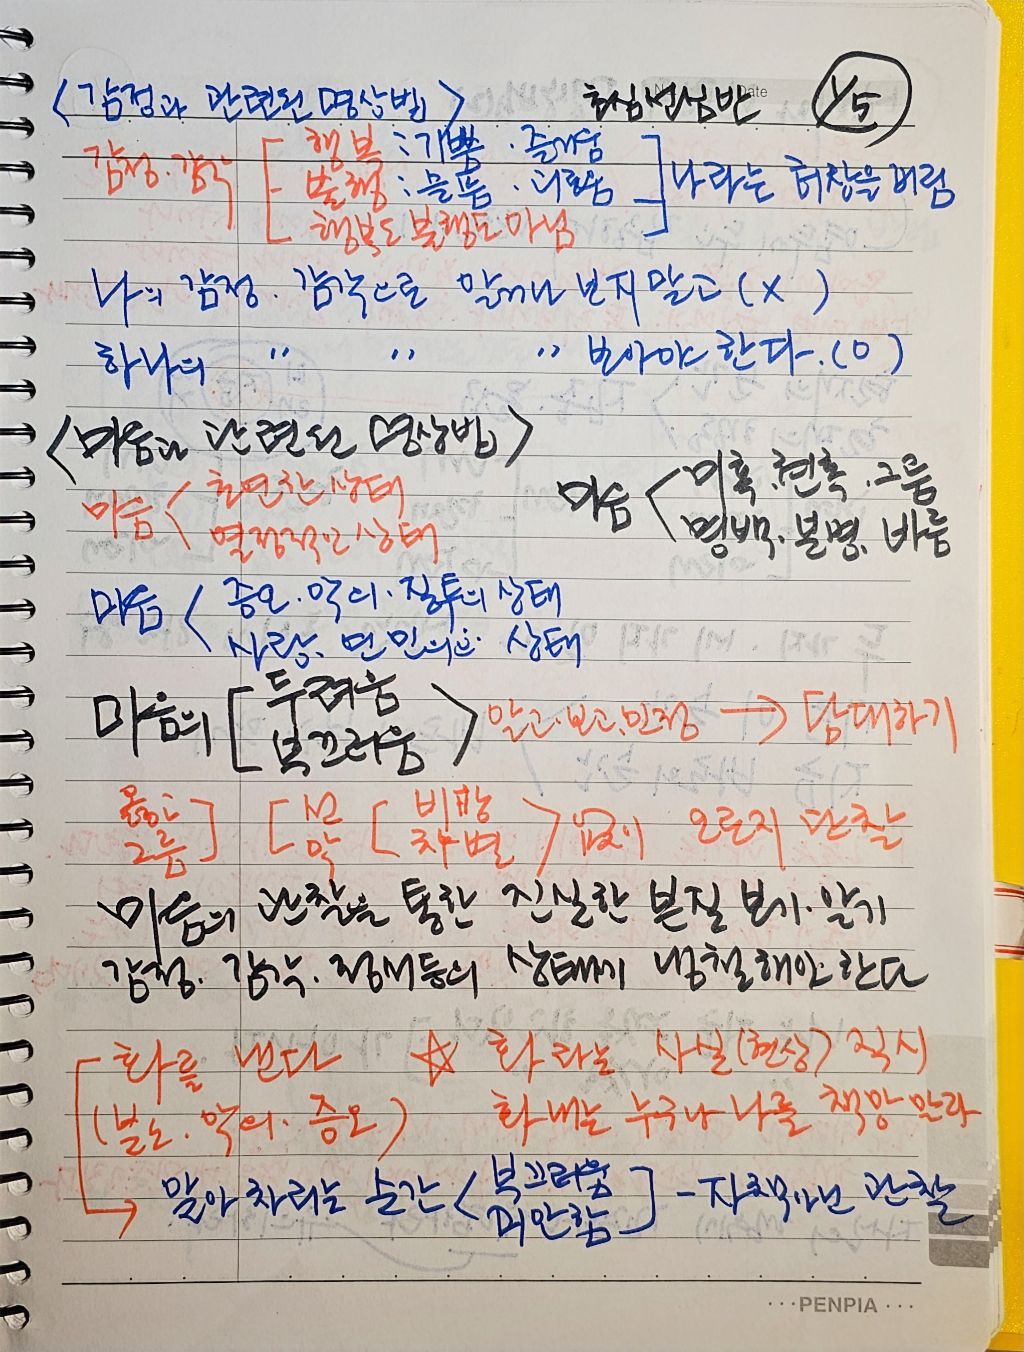 <감정과 관련된 명상법> 초심선심반 1/5
감정·감각 [ 행복 : 기쁨 · 즐거움
불행 : 슬픔 · 괴로움 ] 나라는 허창을 버림
행복도 불행도 아님
나의 감정 · 감각으로 알거나 보지말고 (X)
하나의 〃 〃 〃 보아야 한다.(O)
<마음과 관련된 명상법>
마음 < 초연한 상태
열정적인 상태
마음 < 미혹·현혹·그름
명백·분명·바름
마음 < 증오·악의·질투의 상태
사랑·연민의 상태
마음의 [ 두려움
부끄러움 > 알고·보고·인정 → 담대하기
옳음
그름 ] [ 선
악 [ 비방
차별 > 없이 오로지 관찰
마음의 관찰을 통한 진실한 본질 보기·알기
감정·감각·정서등의 상태까지 성찰해야 한다
화를 낸다 ☆ 화라는 사실(현상) 직시
(분노·악의·증오) 화내는 누구나 나를 책망 말라
→ 알아차리는 순간 < 부끄러움
미안함 ] - 자책아닌 관찰
···PENPIA···